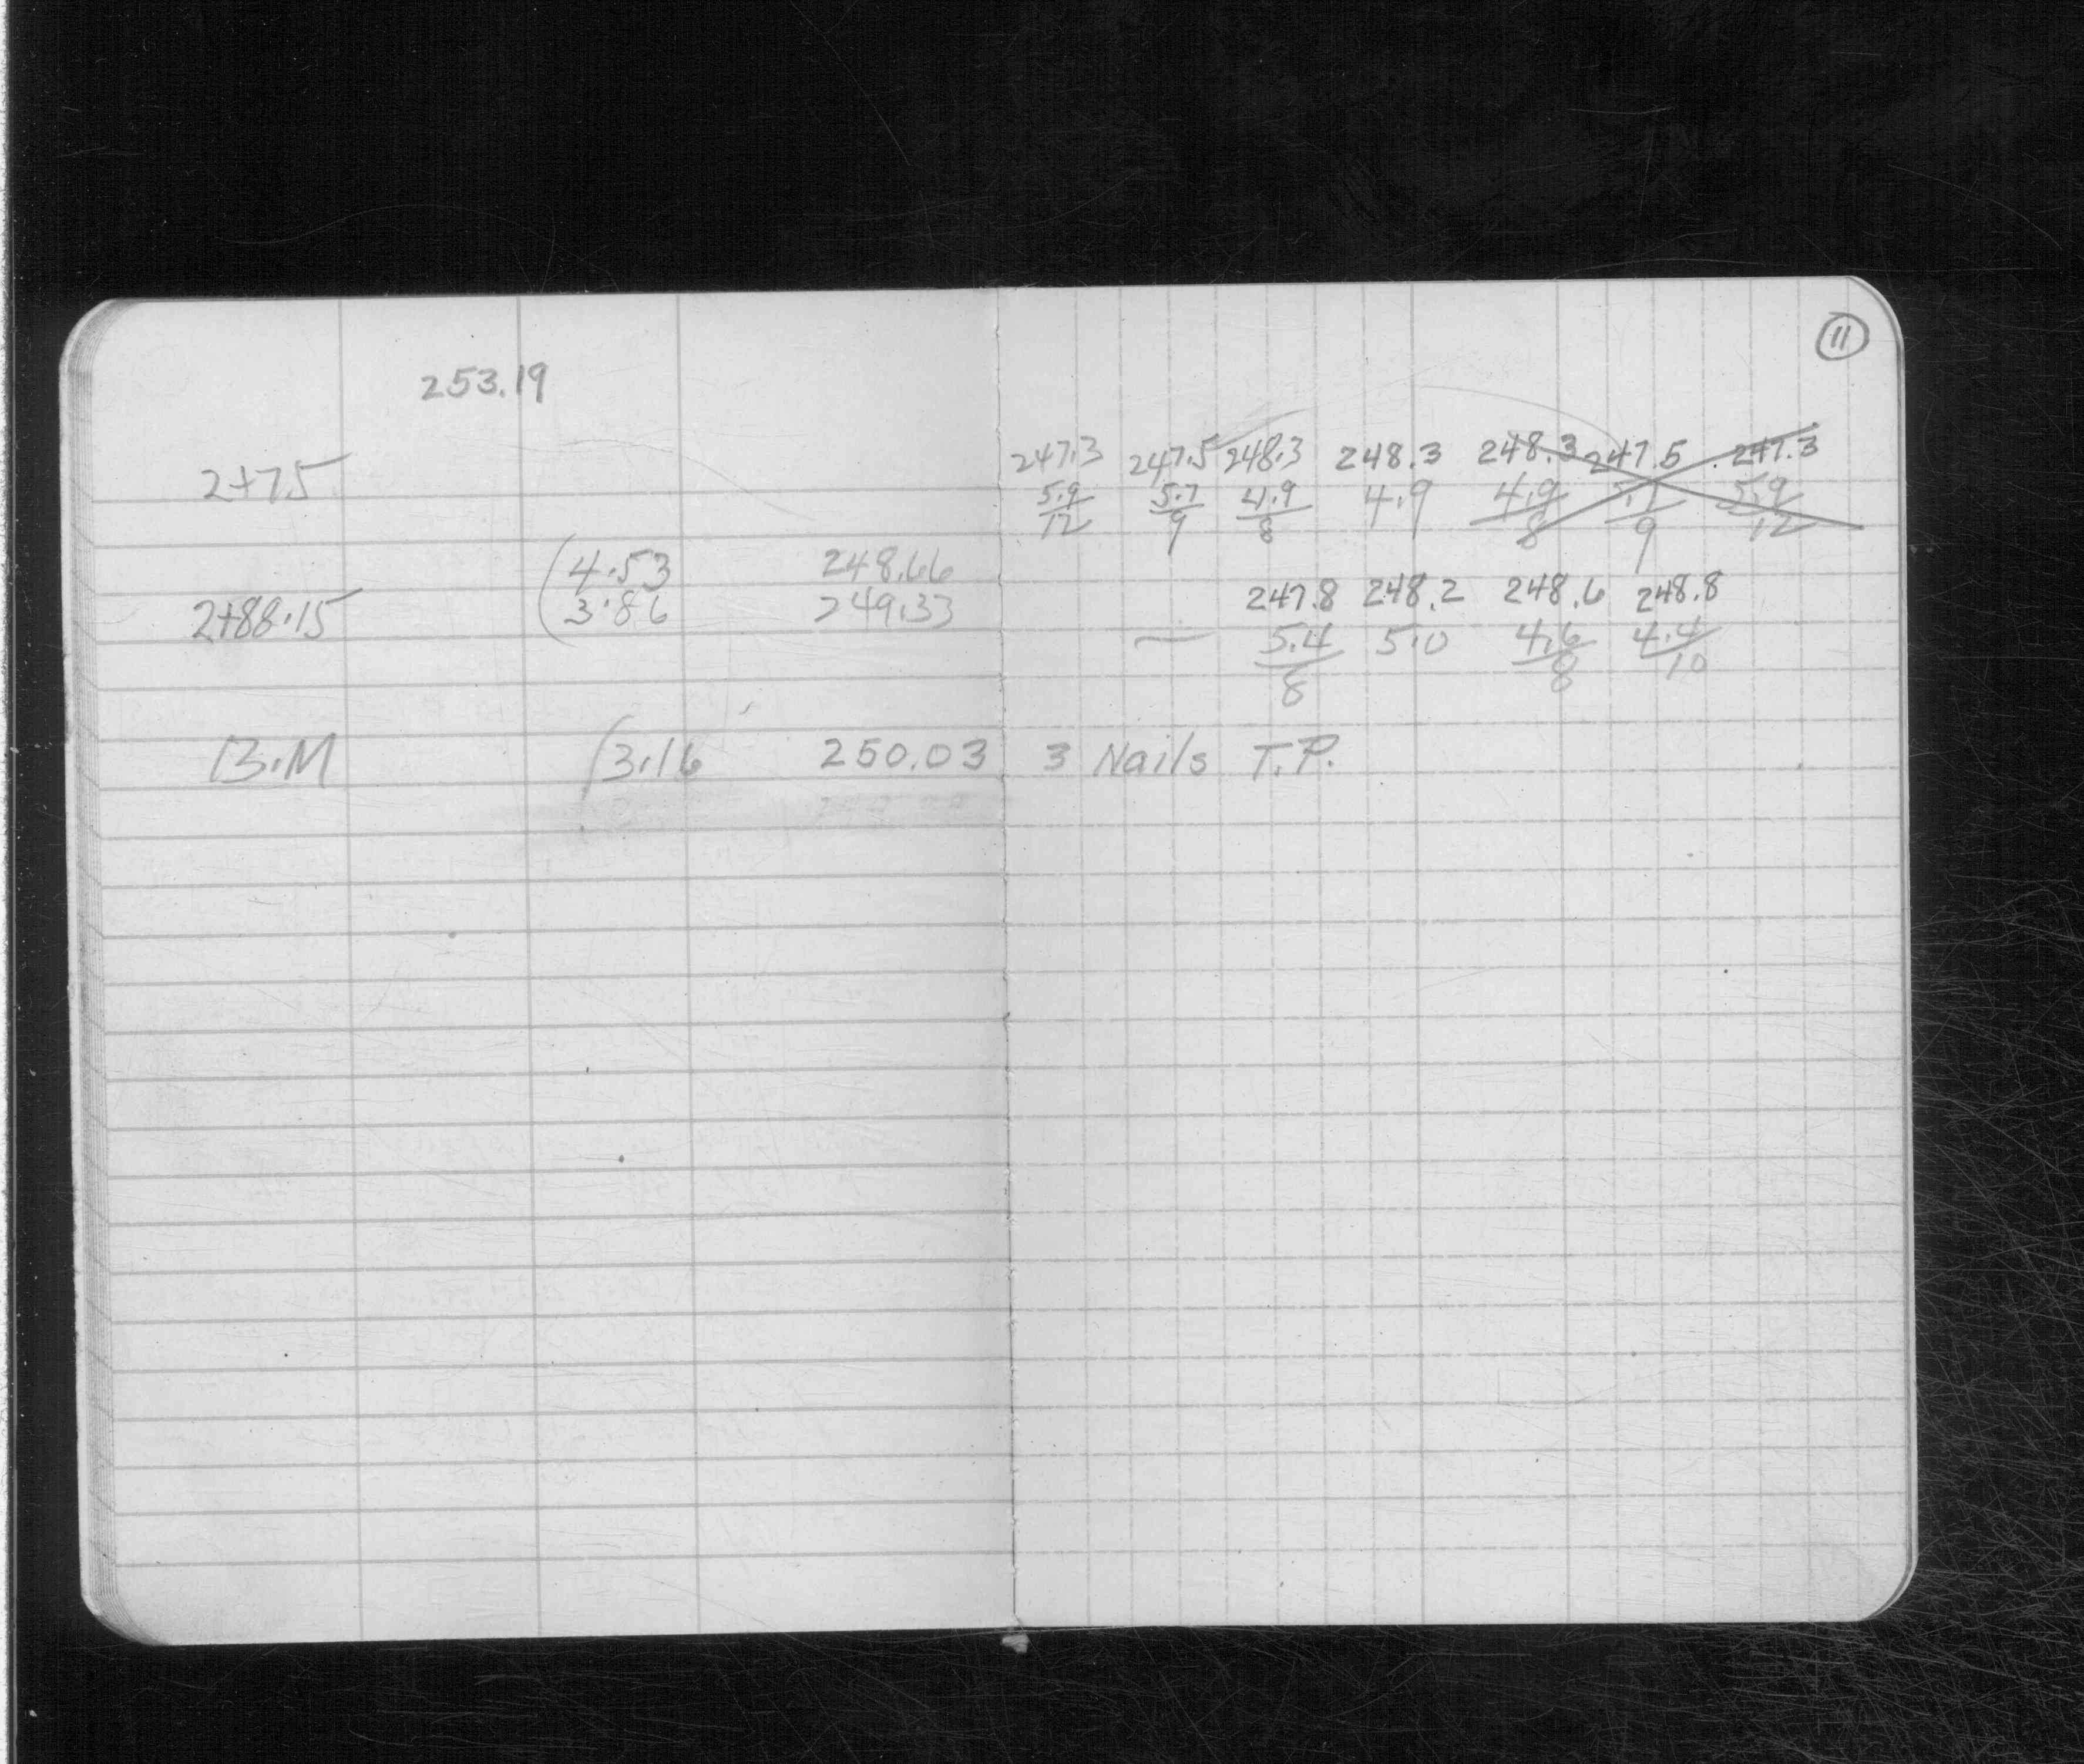 11
253.19
247.3 247.5 248.3 248.3 248.3 247.5 247.3
2+75 5.9 5.7 4.9 4.9 4.9 5.7 5.9
12 9 8 8 9 12
(4.53 248.66
2+88.15 3.86 249.33 247.8 248.2 248.6 248.8
— 5.4 5.0 4.6 4.4
8 8 10
B.M (3.16 250.03 3 Nails T.P.